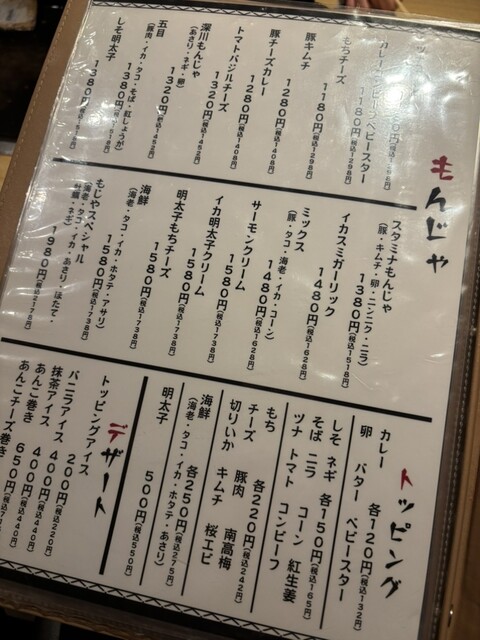 もんじゃ
カレー ベビースター
1180円(税込1298円)
もちチーズ
1180円(税込1298円)
豚キムチ
1280円(税込1408円)
豚チーズカレー
1280円(税込1408円)
トマトバジルチーズ
1320円(税込1452円)
深川もんじゃ
(あさり・ネギ・卵)
1320円(税込1452円)
五目
(豚肉・イカ・タコ・そば・紅しょうが)
1380円(税込1518円)
しそ明太子
1380円(税込1518円)
スタミナもんじゃ
(豚・キムチ・卵・ニンニク・ニラ)
1380円(税込1518円)
イカスミガーリック
1480円(税込1628円)
ミックス
(豚・タコ・海老・イカ・コーン)
1480円(税込1628円)
サーモンクリーム
1580円(税込1738円)
イカ明太子クリーム
1580円(税込1738円)
明太子もちチーズ
1580円(税込1738円)
海鮮
(海老・タコ・イカ・ホタテ・アサリ)
1580円(税込1738円)
もじやスペシャル
(海老・タコ・イカ・あさり・ほたて・
牡蠣・ネギ)
1980円(税込2178円)
トッピング
カレー 各120円(税込132円)
卵 バター ベビースター
しそ ネギ 各150円(税込165円)
そば ニラ コーン 紅生姜
ツナ トマト コンビーフ
もち 各220円(税込242円)
チーズ 豚肉 南高梅
切りいか キムチ 桜エビ
海鮮 各250円(税込275円)
(海老・タコ・イカ・ホタテ・あさり)
明太子 500円(税込550円)
デザート
トッピングアイス
バニラアイス 200円(税込220円)
抹茶アイス 400円(税込440円)
あんこ巻き 400円(税込440円)
あんこチーズ巻き 650円